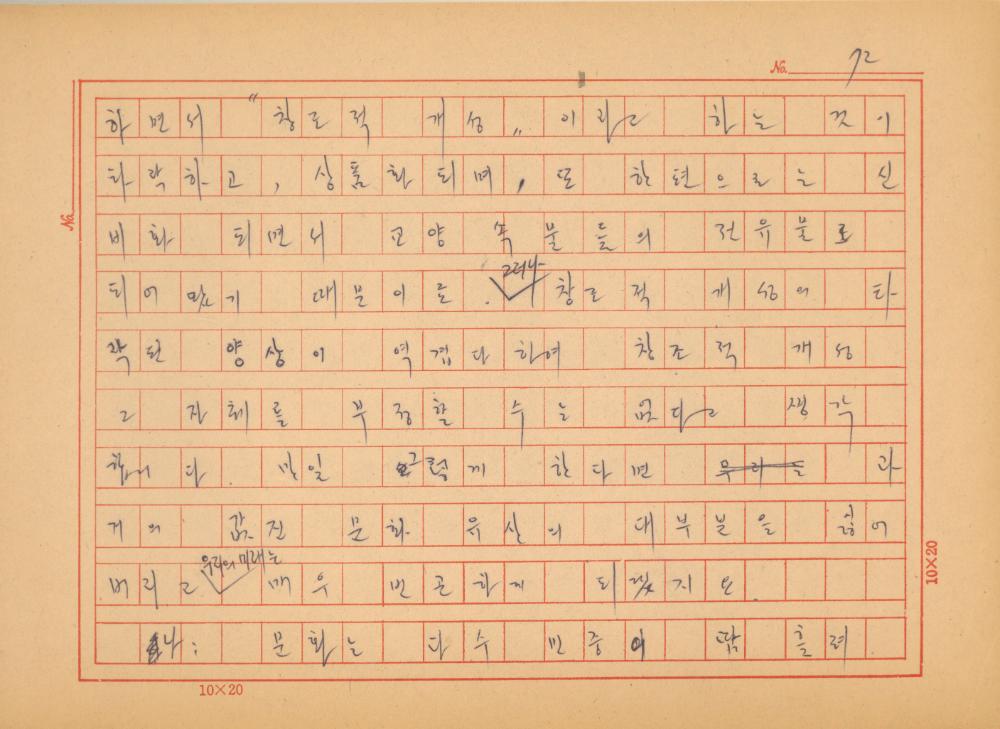 No. 72
하면서 "창조적 개성" 이라고 하는 것이
타락하고, 상품화 되며, 또 한편으로는 신
비화 되면서 교양 속물들의 전유물로
되어 있기 때문이죠. 그러나 창조적 개성의 타
락된 양상이 역겹다 하여 창조적 개성
그 자체를 부정할 수는 없다고 생각
합니다. 만일 그렇게 한다면 우리는 과
거의 값진 문화 유산의 대부분을 잃어
버리고 우리의 미래는 매우 빈곤하게 되겠지요.
나: 문화는 다수 민중이 땀 흘려
No.
10×20
10×20